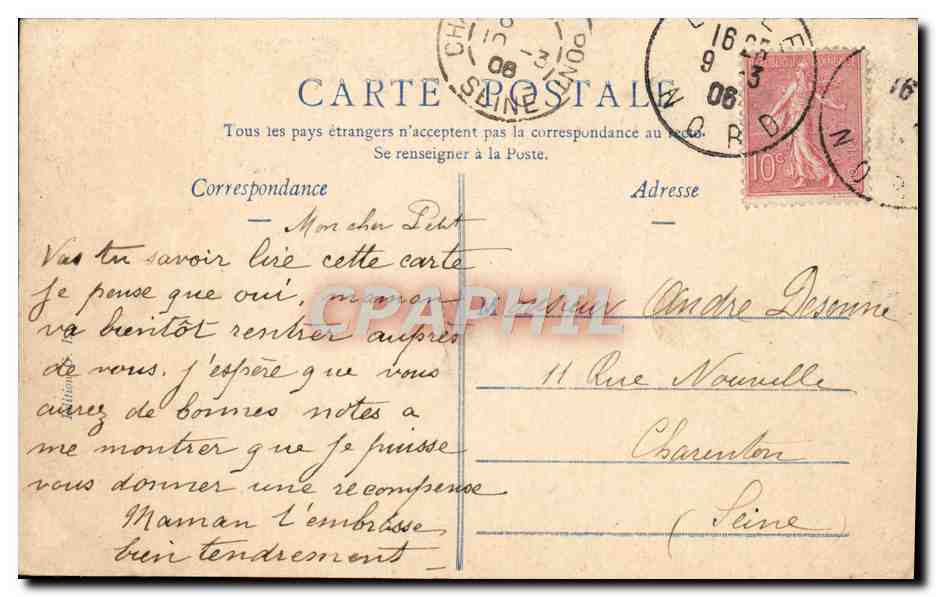 CHA PONT
10
13
06
SEINE
16
9 3
06
NORD
CARTE POSTALE
Tous les pays étrangers n'acceptent pas la correspondance au recto.
Se renseigner à la Poste.
Correspondance
Mon cher Petit
Vas tu savoir lire cette carte
Je pense que oui, maman
va bientôt rentrer auprès
de vous. J'espère que vous
aurez de bonnes notes a
me montrer que Je puisse
vous donner une recompense
Maman t'embrasse
bien tendrement
Adresse
Monsieur André Desonne
11 Rue Nouvelle
Charenton
(Seine
10c
16
NO
CPAPHIL